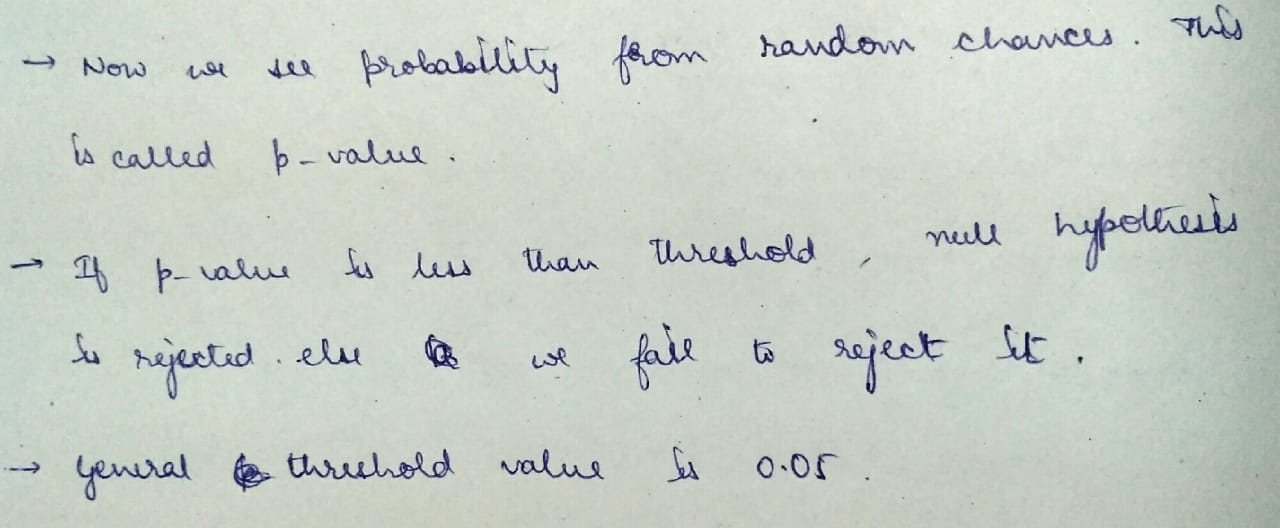 → Now we see probability from random chances. This
is called p-value.
→ If p-value is less than threshold, null hypothesis
is rejected. else we fail to reject it.
→ General threshold value is 0.05.